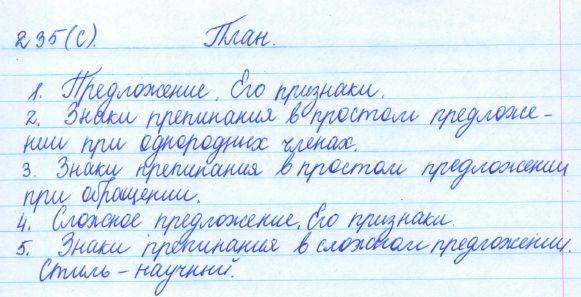 235(с). План.
1. Предложение. Его признаки.
2. Знаки препинания в простом предложе-
нии при однородных членах.
3. Знаки препинания в простом предложении
при обращении.
4. Сложное предложение. Его признаки.
5. Знаки препинания в сложном предложении.
Стиль – научный.